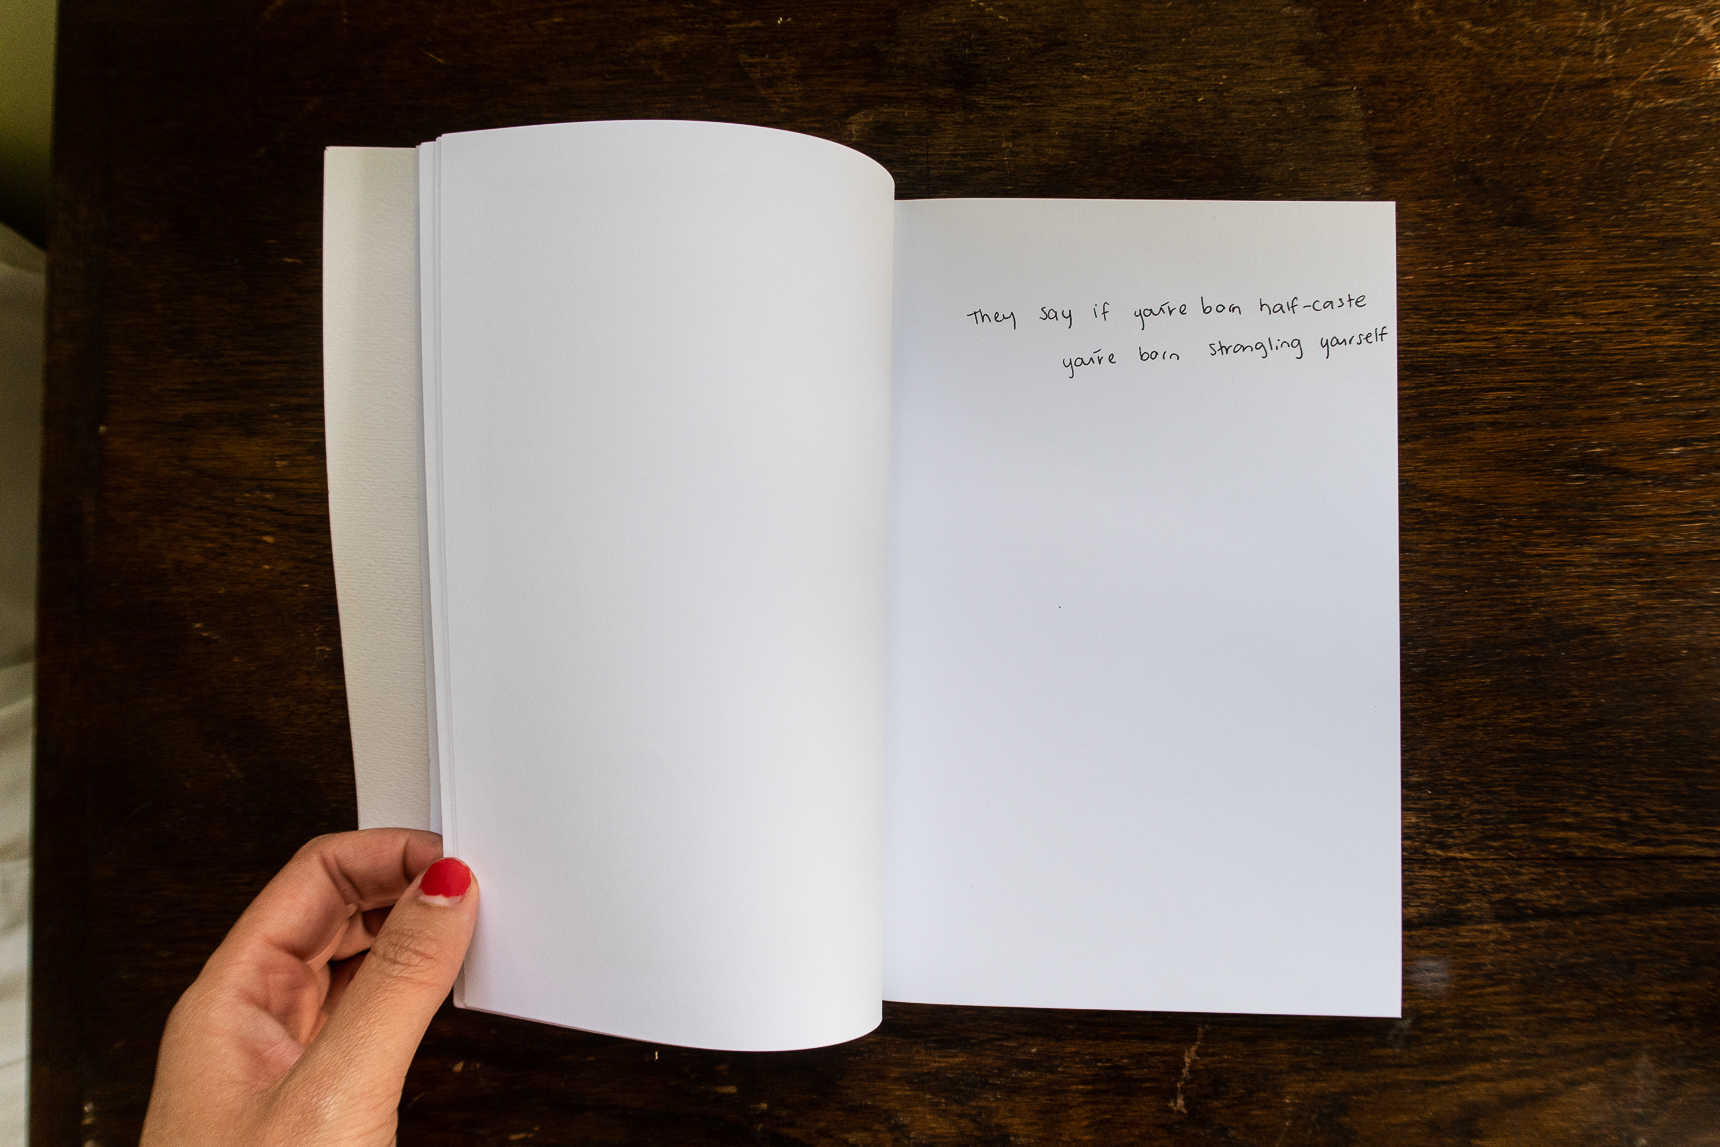 They say if you're born half-caste
you're born strangling yourself